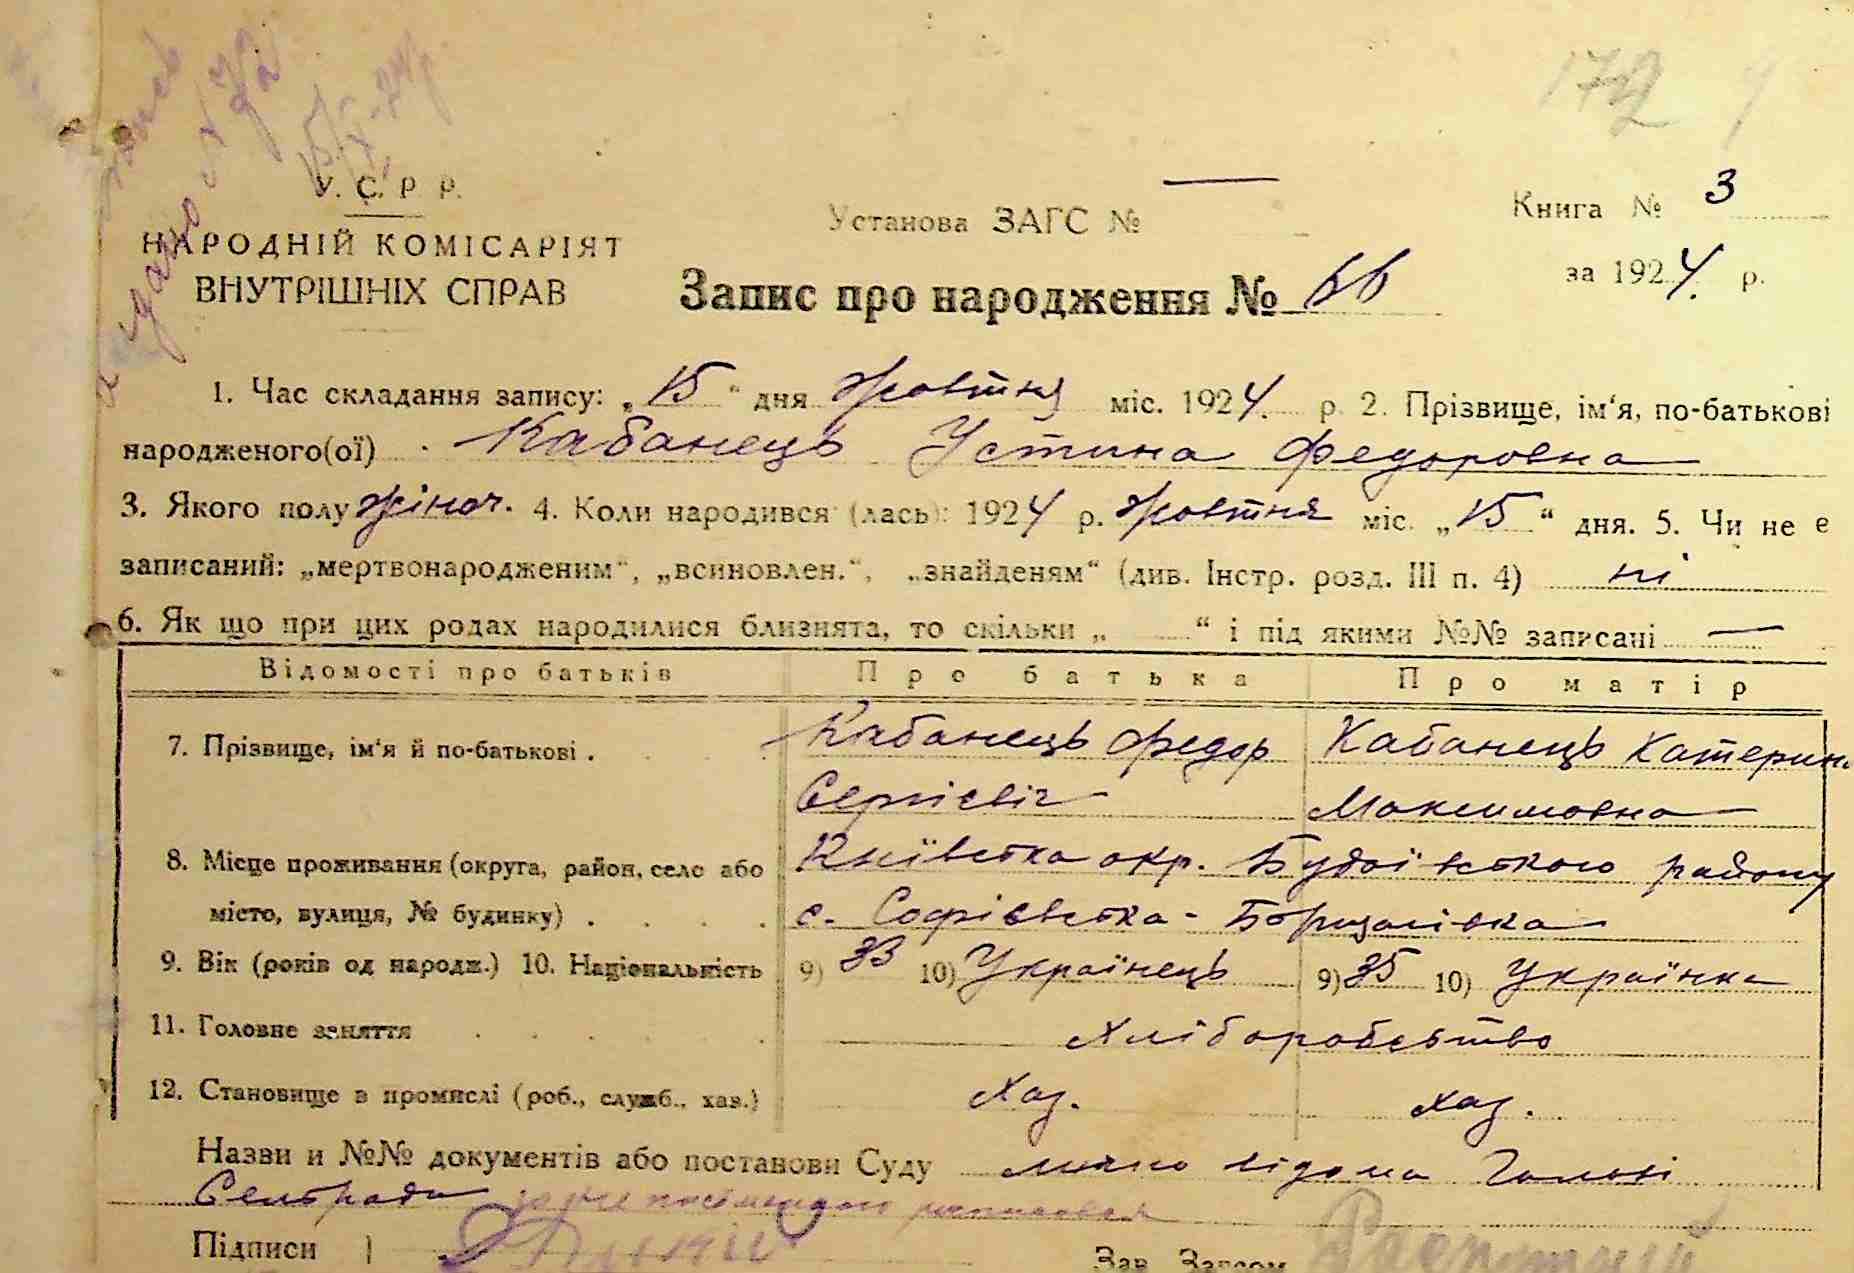 172
У. С. Р. Р.
НАРОДНІЙ КОМІСАРІЯТ
ВНУТРІШНІХ СПРАВ
Установа ЗАГС № —
Книга № 3
за 1924 р.
Запис про народження № 66
1. Час складання запису: „15" дня жовтня міс. 1924. р 2. Прізвище, ім'я, по-батькові
народженого(ої) Кабанець Устина Федоровна
3. Якого полу жіноч. 4. Коли народився (лась): 1924 р. жовтня міс. „15" дня. 5. Чи не є
записаний: „мертвонародженим", „всиновлен.", „знайденям" (див. Інстр. розд. III п. 4) ні
6. Як що при цих родах народилися близнята, то скільки „ " і під якими №№ записані —
Відомості про батьків Про батька Про матір
7. Прізвище, ім'я й по-батькові . Кабанець Федор Кабанець Катерина
Сергієвіч Максимовна
8. Місце проживання (округа, район, село або Київська окр. Будаївського району
місто, вулиця, № будинку) . . . . с. Софієвська - Борщагівка
9. Вік (років од народж.) 10. Національність 9) 33 10) Українець 9) 35 10) Українка
11. Головне заняття . . . . . Хліборобство
12. Становище в промислі (роб., служб., хаз.) Хаз. хаз.
Назви и №№ документів або постанови Суду лично відома Голові
Сельради
Підписи
Зав. Загсом